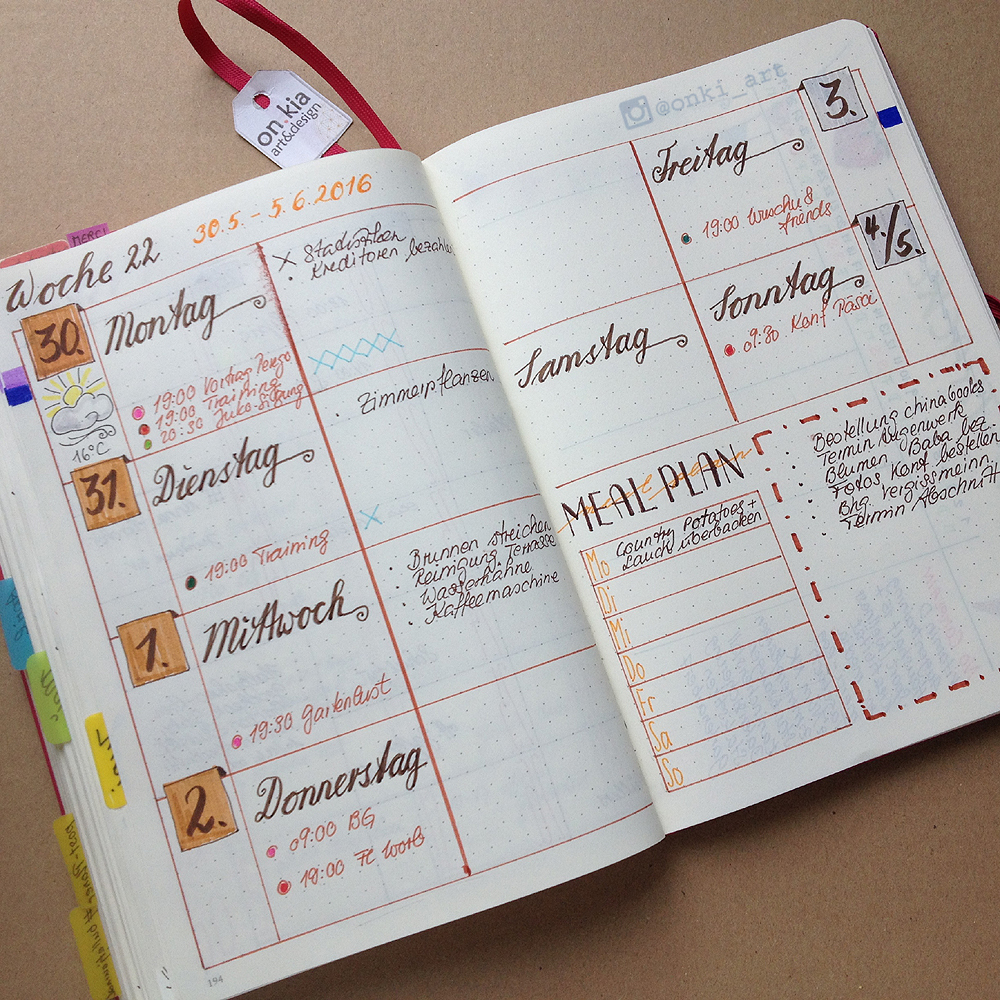 on.kia
art&design
@onki_art
MERCI
30.5. - 5.6.2016
Woche 22
30.
Montag
19:00 Vortrag
19:00 Training
20:30 Juko-Sitzung
16°C
Kreditoren bezahl
31.
Dienstag
19:00 Training
Zimmerpflanzen
1.
Mittwoch
19:30 Gartenlust
Brunnen streichen
Reinigung Terrasse
Wasserhähne
Kaffeemaschine
2.
Donnerstag
09:00 BG
19:00 FC Worb
194
3.
Freitag
19:00 Wuschu &
friends
4./5.
Samstag
Sonntag
09:30 Konf Päsci
MEAL PLAN
Mo Country Potatoes +
Lauch überbacken
Di
Mi
Do
Fr
Sa
So
Bestellung chinabooks
Termin Augenwerk
Blumen Baba bez.
Fotos Konf bestellen
Bhg. Vergissmeinn.
Termin Abschnitt